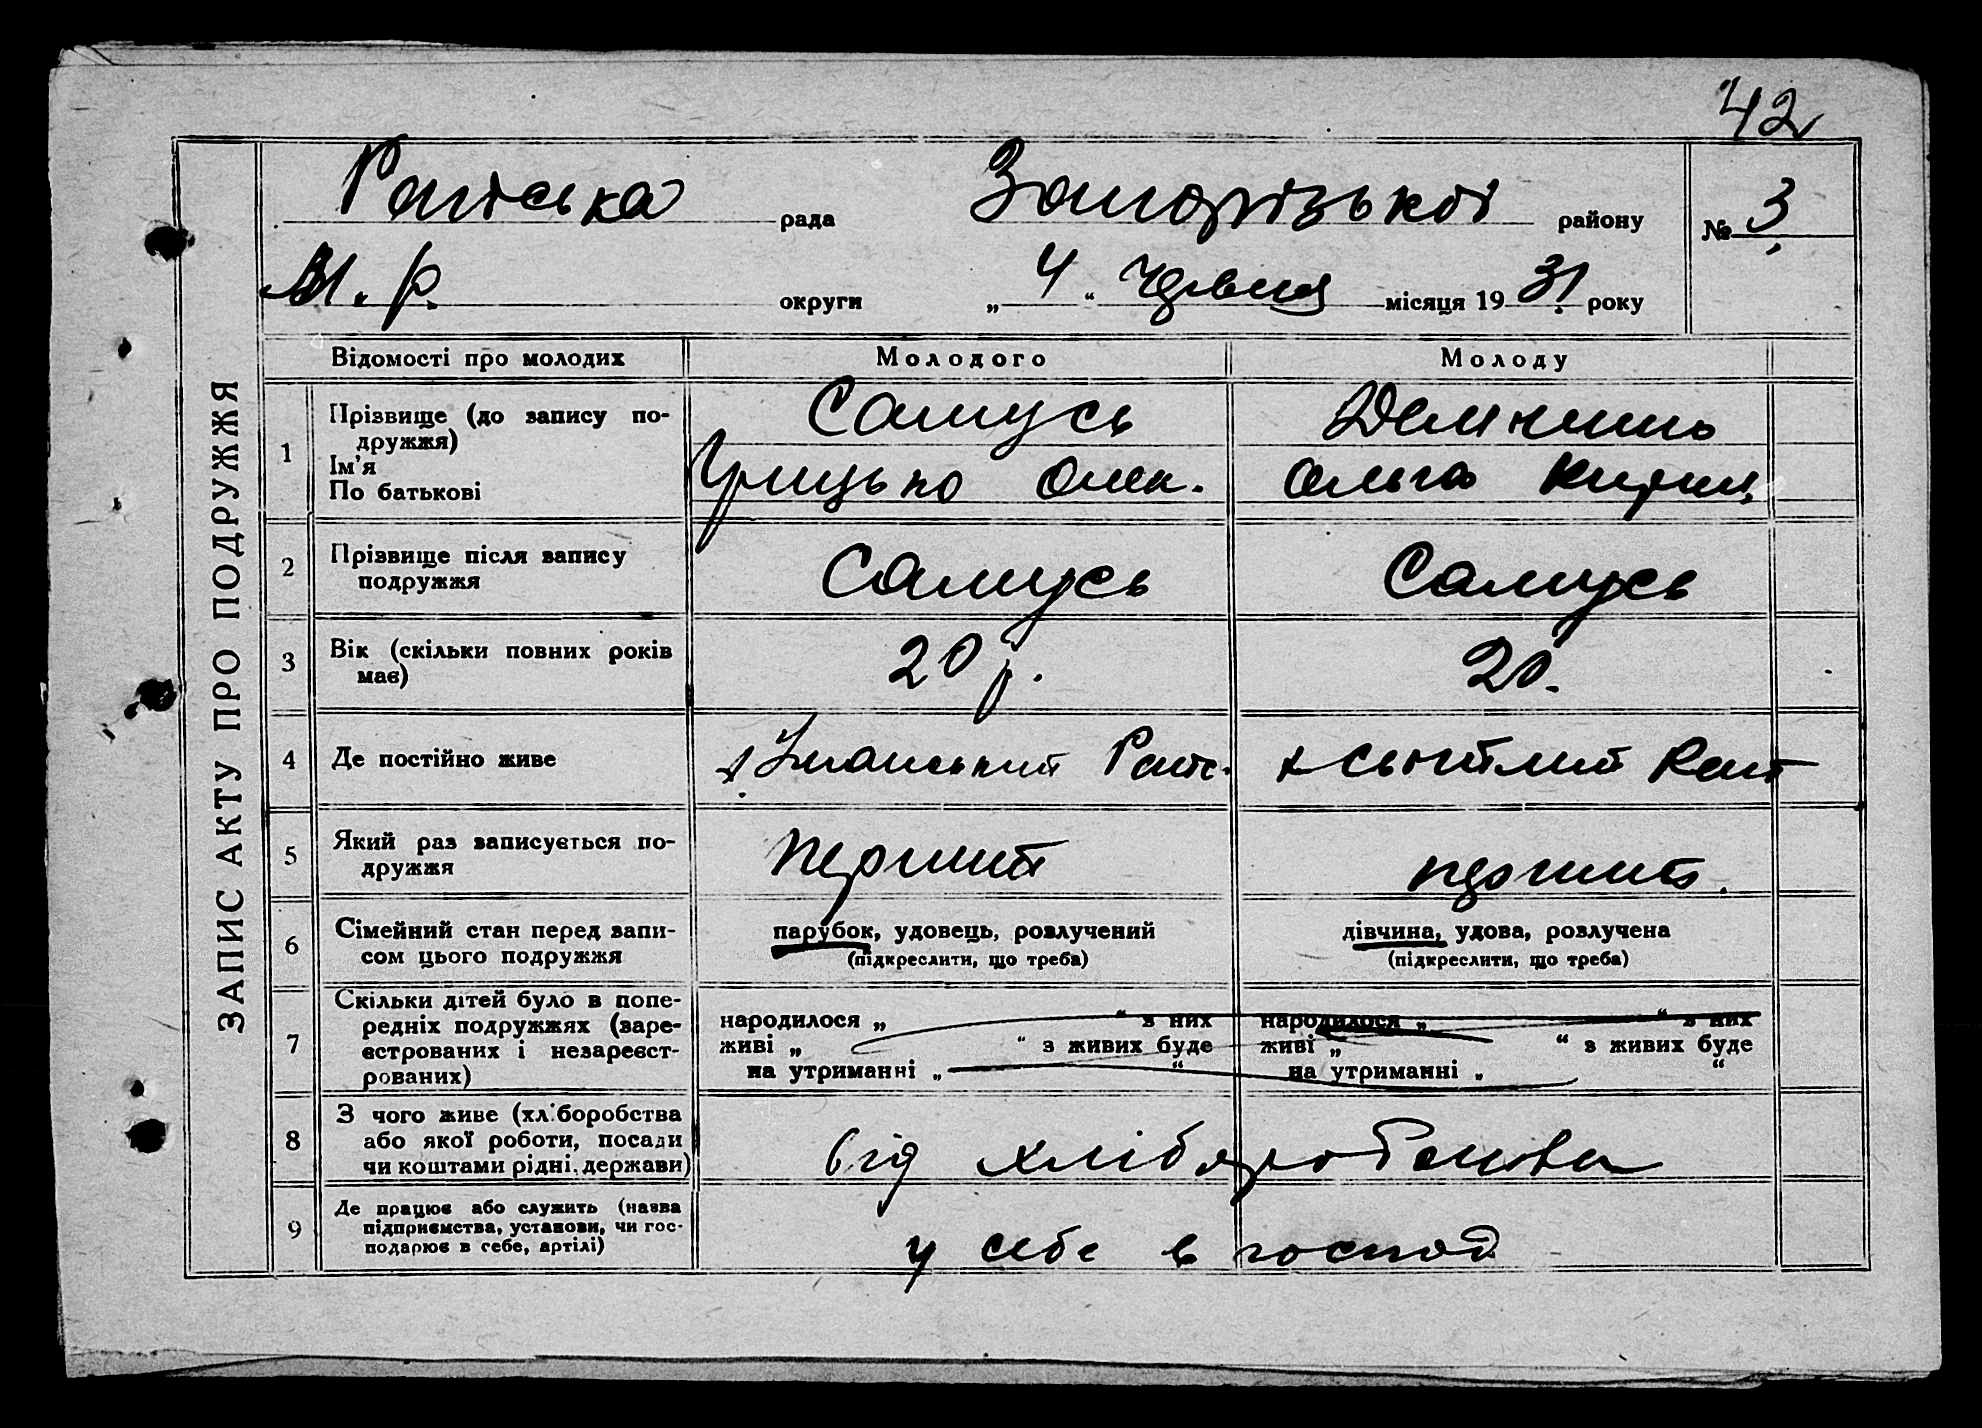 42
рада Запорізької району № 3
М. р. округи „ 4 “ червня місяця 1931 року
ЗАПИС АКТУ ПРО ПОДРУЖЖЯ
Відомості про молодих Молодого Молоду
1 Прізвище (до запису по-
дружжя)
Ім'я
По батькові
Самусь
Грицько Олек.
Ольга Кирил.
2 Прізвище після запису
подружжя
Самусь Самусь
3 Вік (скільки повних років
має)
20 р. 20.
4 Де постійно живе
х. х
5 Який раз записується по-
дружжя
перший перший.
6 Сімейний стан перед запи-
сом цього подружжя
парубок, удовець, розлучений
(підкреслити, що треба)
дівчина, удова, розлучена
(підкреслити, що треба)
7 Скільки дітей було в попе-
редніх подружжях (заре-
єстрованих і незареєст-
рованих)
народилося „ “ з них
живі „ “ з живих буде
на утриманні „ “
народилося „ “ з них
живі „ “ з живих буде
на утриманні „ “
8 З чого живе (хліборобства
або якої роботи, посади
чи коштами рідні, держави)
від хліборобства
9 Де працює або служить (назва
підприємства, установи, чи гос-
подарює в себе, артілі)
у себе в господ.